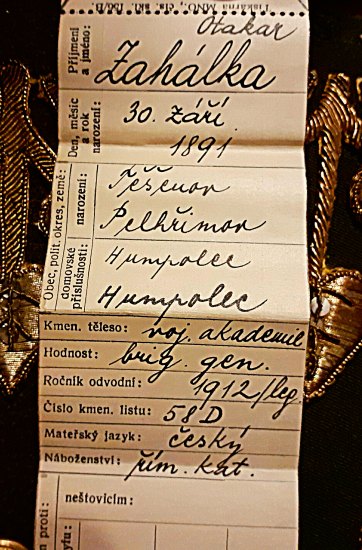 Tiskárna MNO, čís. skl.
Příjmení a jméno:
Otakar
Zahálka
Den, měsíc a rok narození:
30. září
1891
Obec, polit. okres, země:
narození:
Těšenov
Pelhřimov
domovské příslušnosti:
Humpolec
Humpolec
Kmen. těleso: voj. akademie
Hodnost: brig. gen.
Ročník odvodní: 1912/leg.
Číslo kmen. listu: 58 D
Mateřský jazyk: český
Náboženství: řím. kat.
proti:
neštovicím: